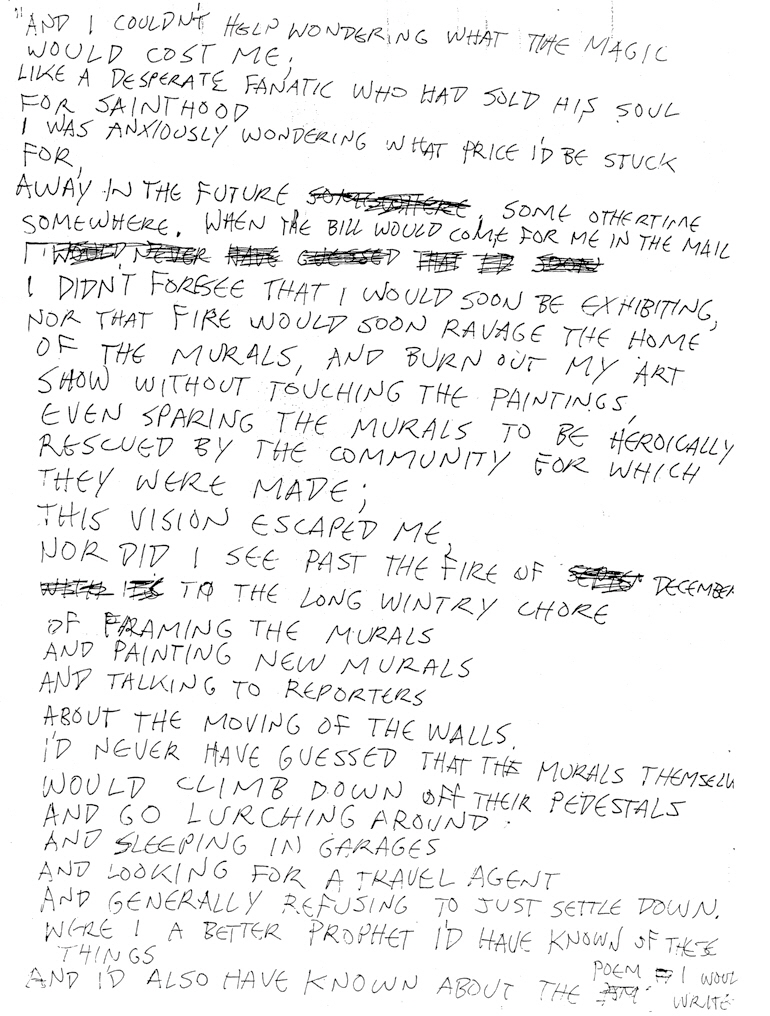 "AND I COULDN'T HELP WONDERING WHAT THE MAGIC
WOULD COST ME;
LIKE A DESPERATE FANATIC WHO HAD SOLD HIS SOUL
FOR SAINTHOOD
I WAS ANXIOUSLY WONDERING WHAT PRICE I'D BE STUCK
FOR,
AWAY IN THE FUTURE SOMEWHERE, SOME OTHERTIME
SOMEWHERE. WHEN THE BILL WOULD COME FOR ME IN THE MAIL
I WOULD NEVER HAVE GUESSED THAT I'D SOON
I DIDN'T FORESEE THAT I WOULD SOON BE EXHIBITING,
NOR THAT FIRE WOULD SOON RAVAGE THE HOME
OF THE MURALS, AND BURN OUT MY ART
SHOW WITHOUT TOUCHING THE PAINTINGS,
EVEN SPARING THE MURALS TO BE HEROICALLY
RESCUED BY THE COMMUNITY FOR WHICH
THEY WERE MADE;
THIS VISION ESCAPED ME,
NOR DID I SEE PAST THE FIRE OF DECEMBER
TO THE LONG WINTRY CHORE
OF FRAMING THE MURALS
AND PAINTING NEW MURALS
AND TALKING TO REPORTERS
ABOUT THE MOVING OF THE WALLS.
I'D NEVER HAVE GUESSED THAT THE MURALS THEMSELV
WOULD CLIMB DOWN OFF THEIR PEDESTALS
AND GO LURCHING AROUND
AND SLEEPING IN GARAGES
AND LOOKING FOR A TRAVEL AGENT
AND GENERALLY REFUSING TO JUST SETTLE DOWN.
WERE I A BETTER PROPHET I'D HAVE KNOWN OF THESE
THINGS
AND I'D ALSO HAVE KNOWN ABOUT THE POEM I WOUL
WRITE